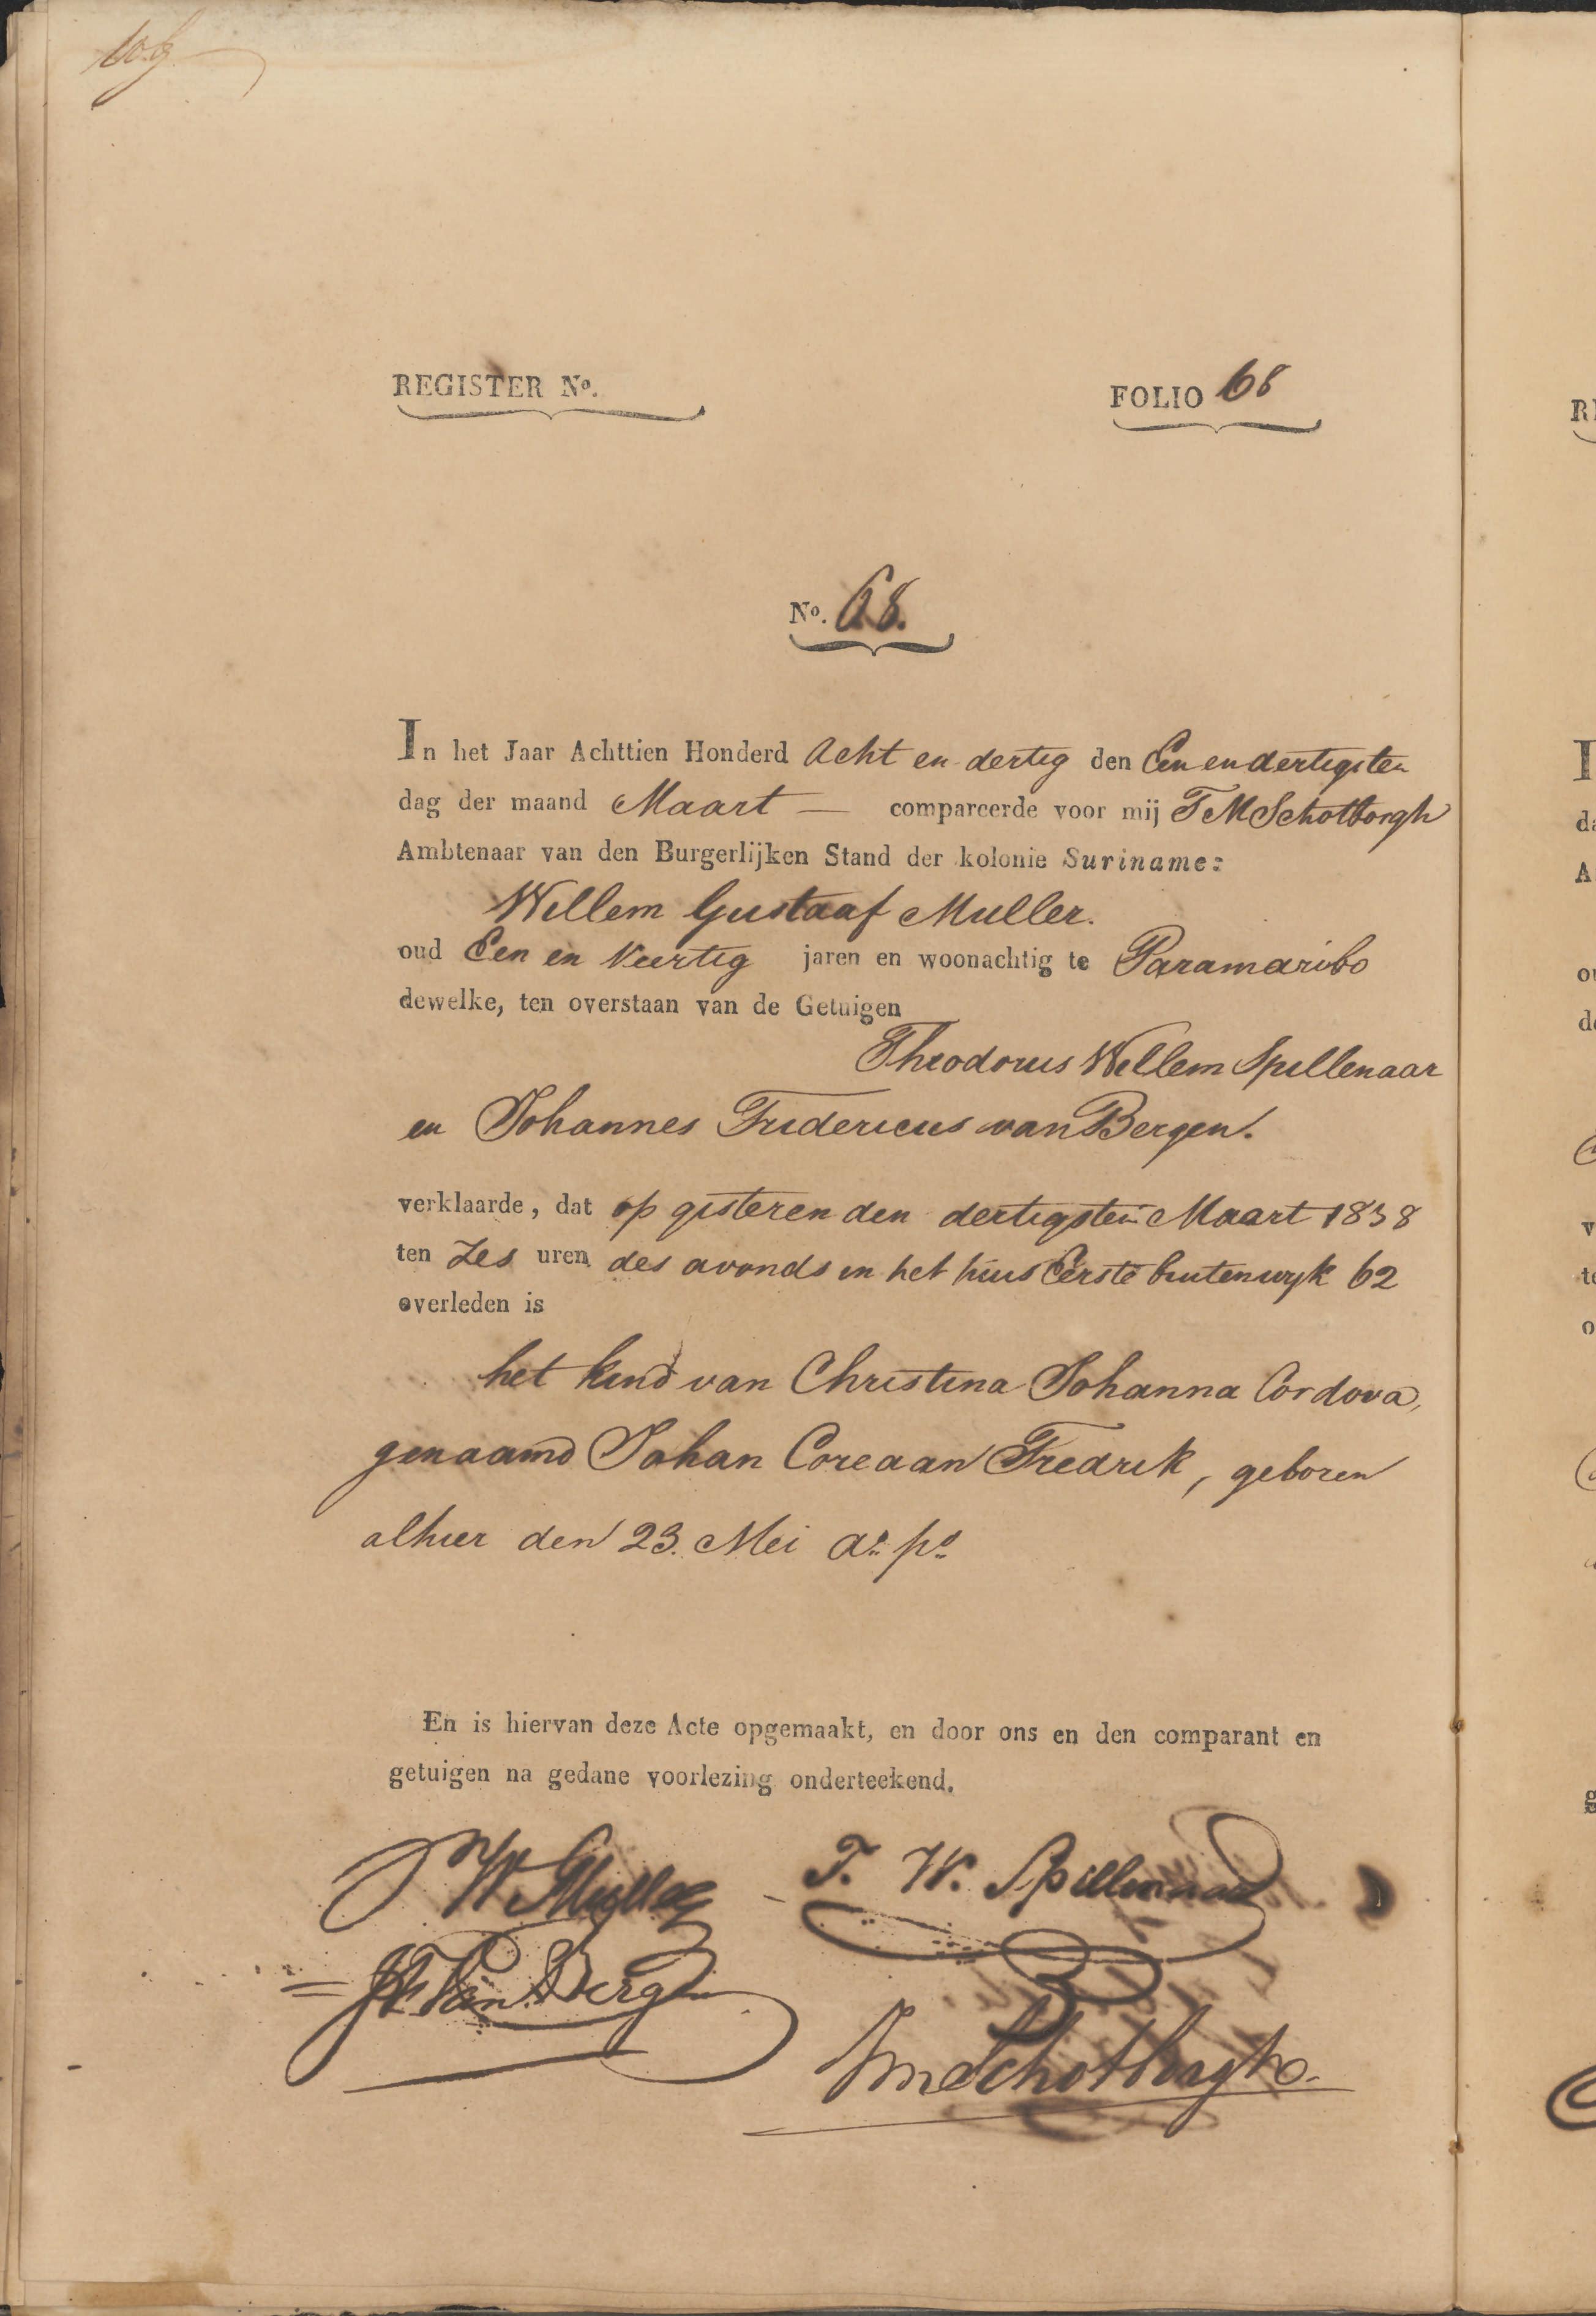 REGISTER Nº.
FOLIO 68
Nº. 68.
In het Jaar Achttien Honderd Acht en dertig den Een en dertigsten
dag der maand Maart — compareerde voor mij T M Schotborgh
Ambtenaar van den Burgerlijken Stand der kolonie Suriname:
Willem Gustaaf Muller.
oud Een en Veertig jaren en woonachtig te Paramaribo
dewelke, ten overstaan van de Getuigen
Theodorus Willem Spillenaar
en Johannes Fridericus van Bergen.
verklaarde, dat op gisteren den dertigsten Maart 1838
ten Zes uren des avonds in het huis Eerste buitenwyk 62
overleden is
het kind van Christina Johanna Cordova,
genaamd Johan Coreaan Fredrik, geboren
alhier den 23. Mei aº pº
En is hiervan deze Acte opgemaakt, en door ons en den comparant en
getuigen na gedane voorlezing onderteekend.
W Muller T. W. Spillenaar
JF Van Bergen
TM Schotborgh.